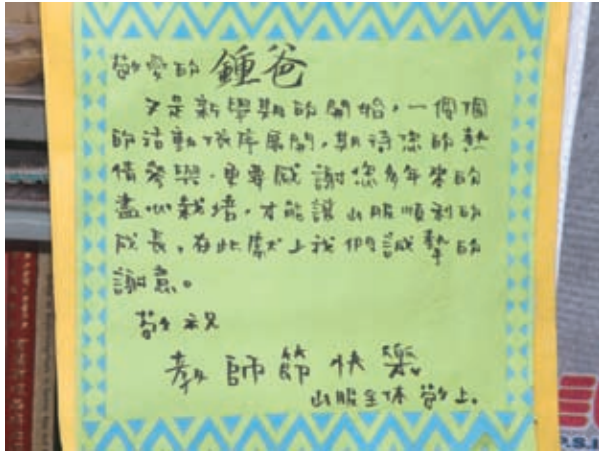 敬愛的 鍾爸
又是新學期的開始,一個個
的活動依序展開,期待您的熱
情參與,更要感謝您多年來的
盡心栽培,才能讓山服順利的
成長,在此獻上我們誠摯的
謝意。
敬祝
教師節快樂
山服全体 敬上。
P.S.I